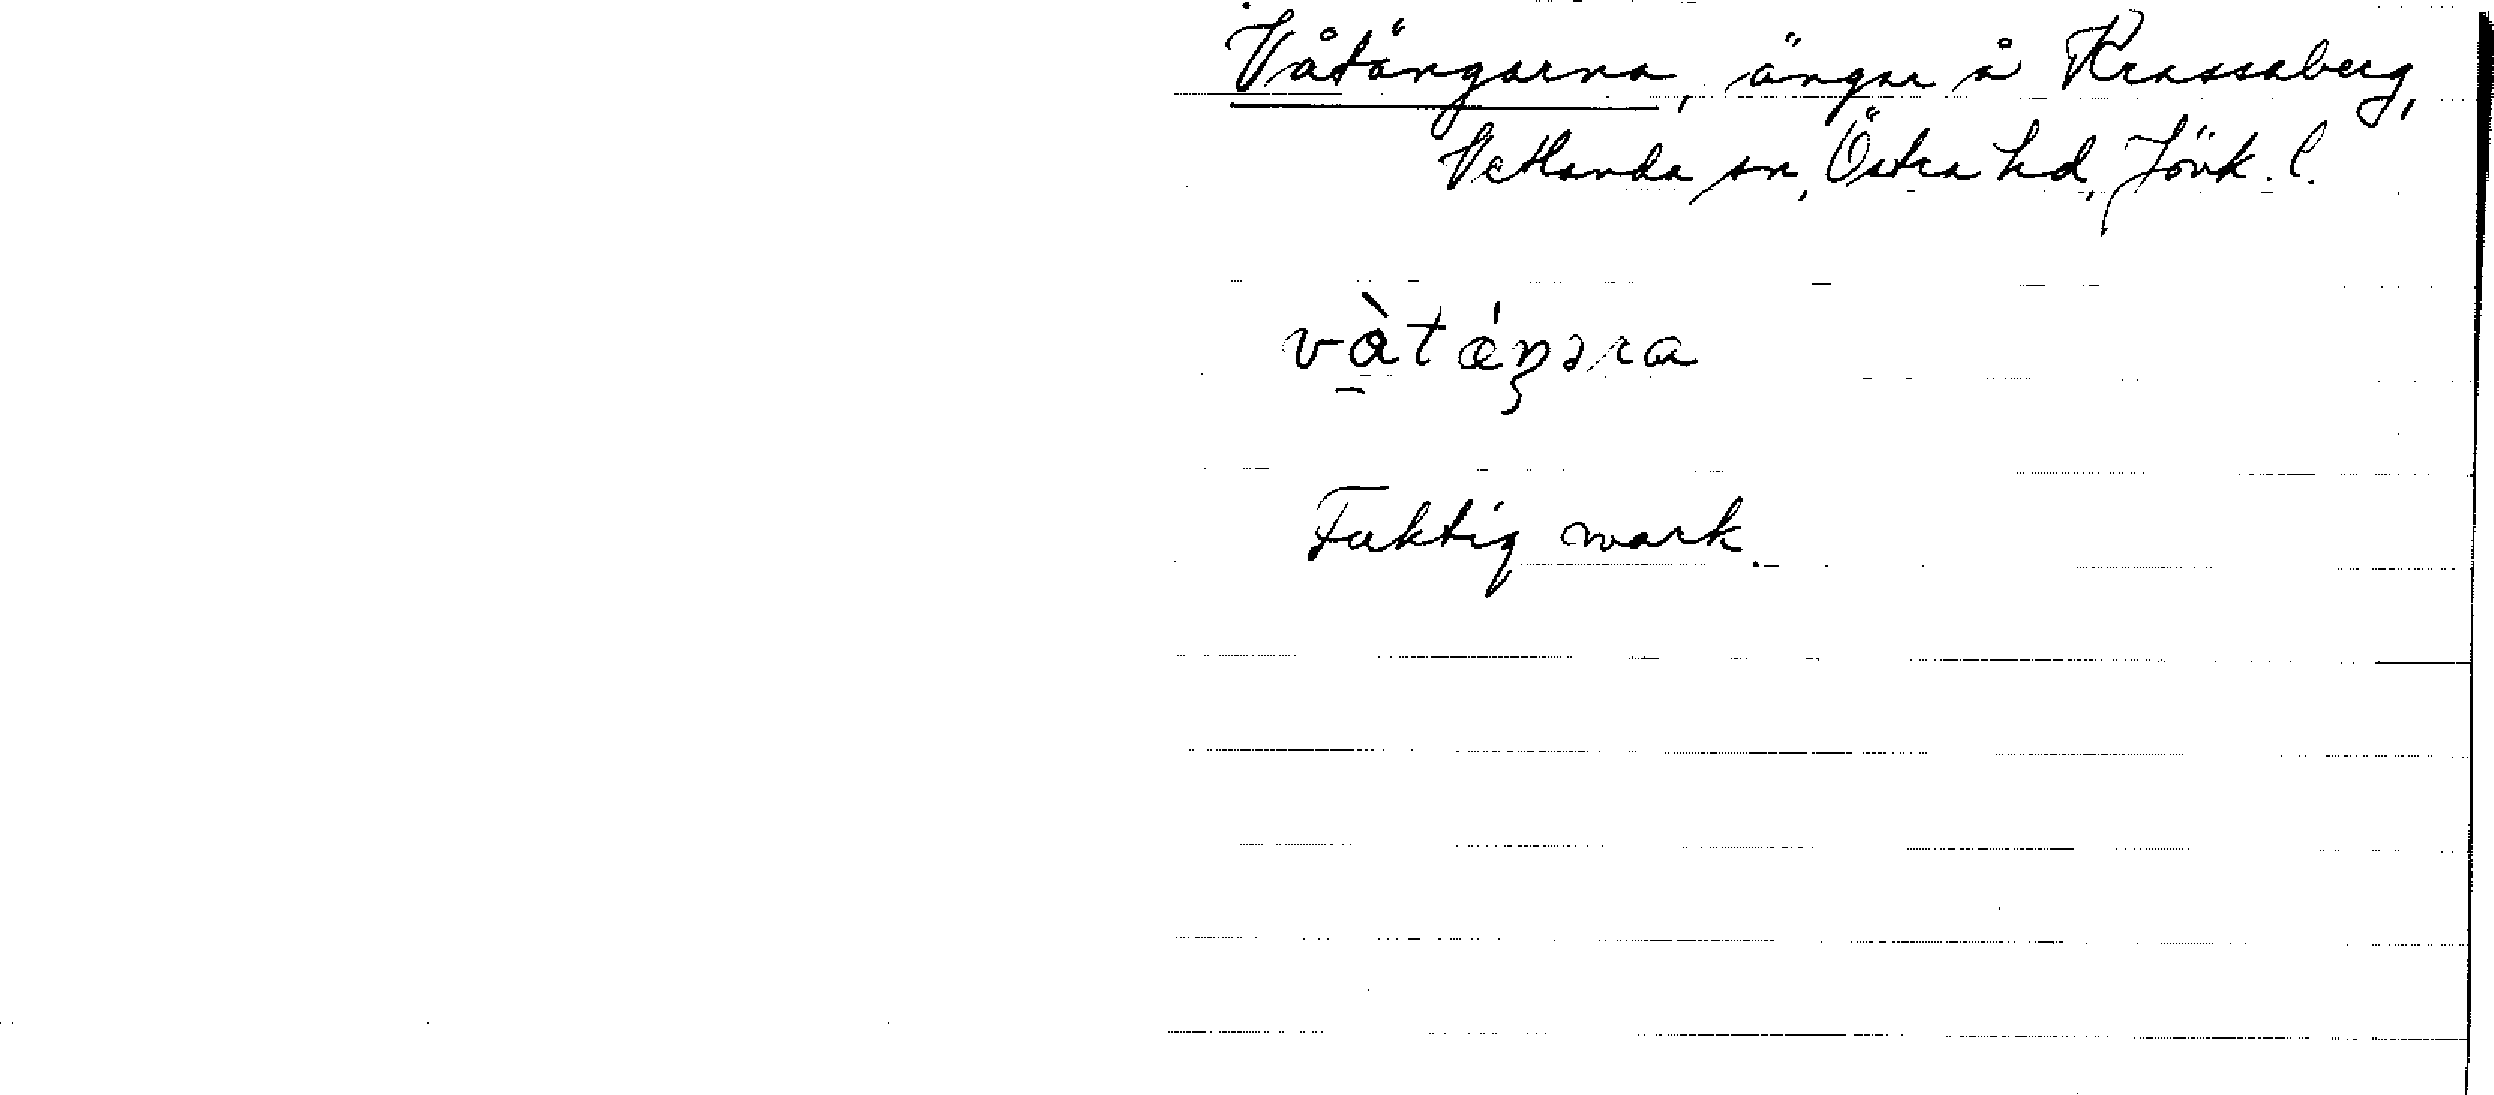 Våtängarna, ängar å Krassaberg,
Vetlanda sn, Östra hd, Jönk. l.
và̱tǽŋəra
Fuktig mark.